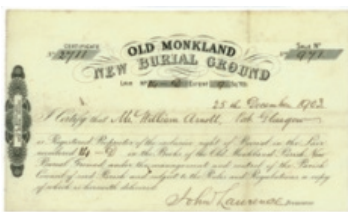 CERTIFICATE
OLD MONKLAND
SALE Nº
Nº 2711
Nº 971
NEW BURIAL GROUND
25 th December 1923
I Certify that Mr William Arnott,
Glasgow
is Registered Proprietor of the exclusive right of Burial in the Lair
numbered in the Books of the Old Monkland Parish New
Burial Ground under the management and control of the Parish
Council of said Parish and subject to the Rules and Regulations a copy
of which is herewith delivered
John Lawrence